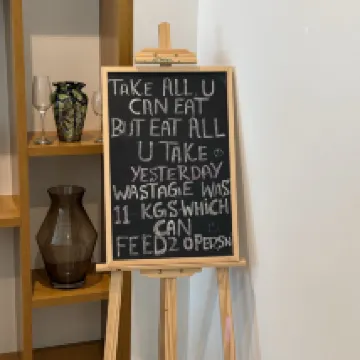 TAKE ALL U
CAN EAT
BUT EAT ALL
U TAKE.
YESTERDAY
WASTAGE WAS
11 KGS WHICH
CAN
FEED